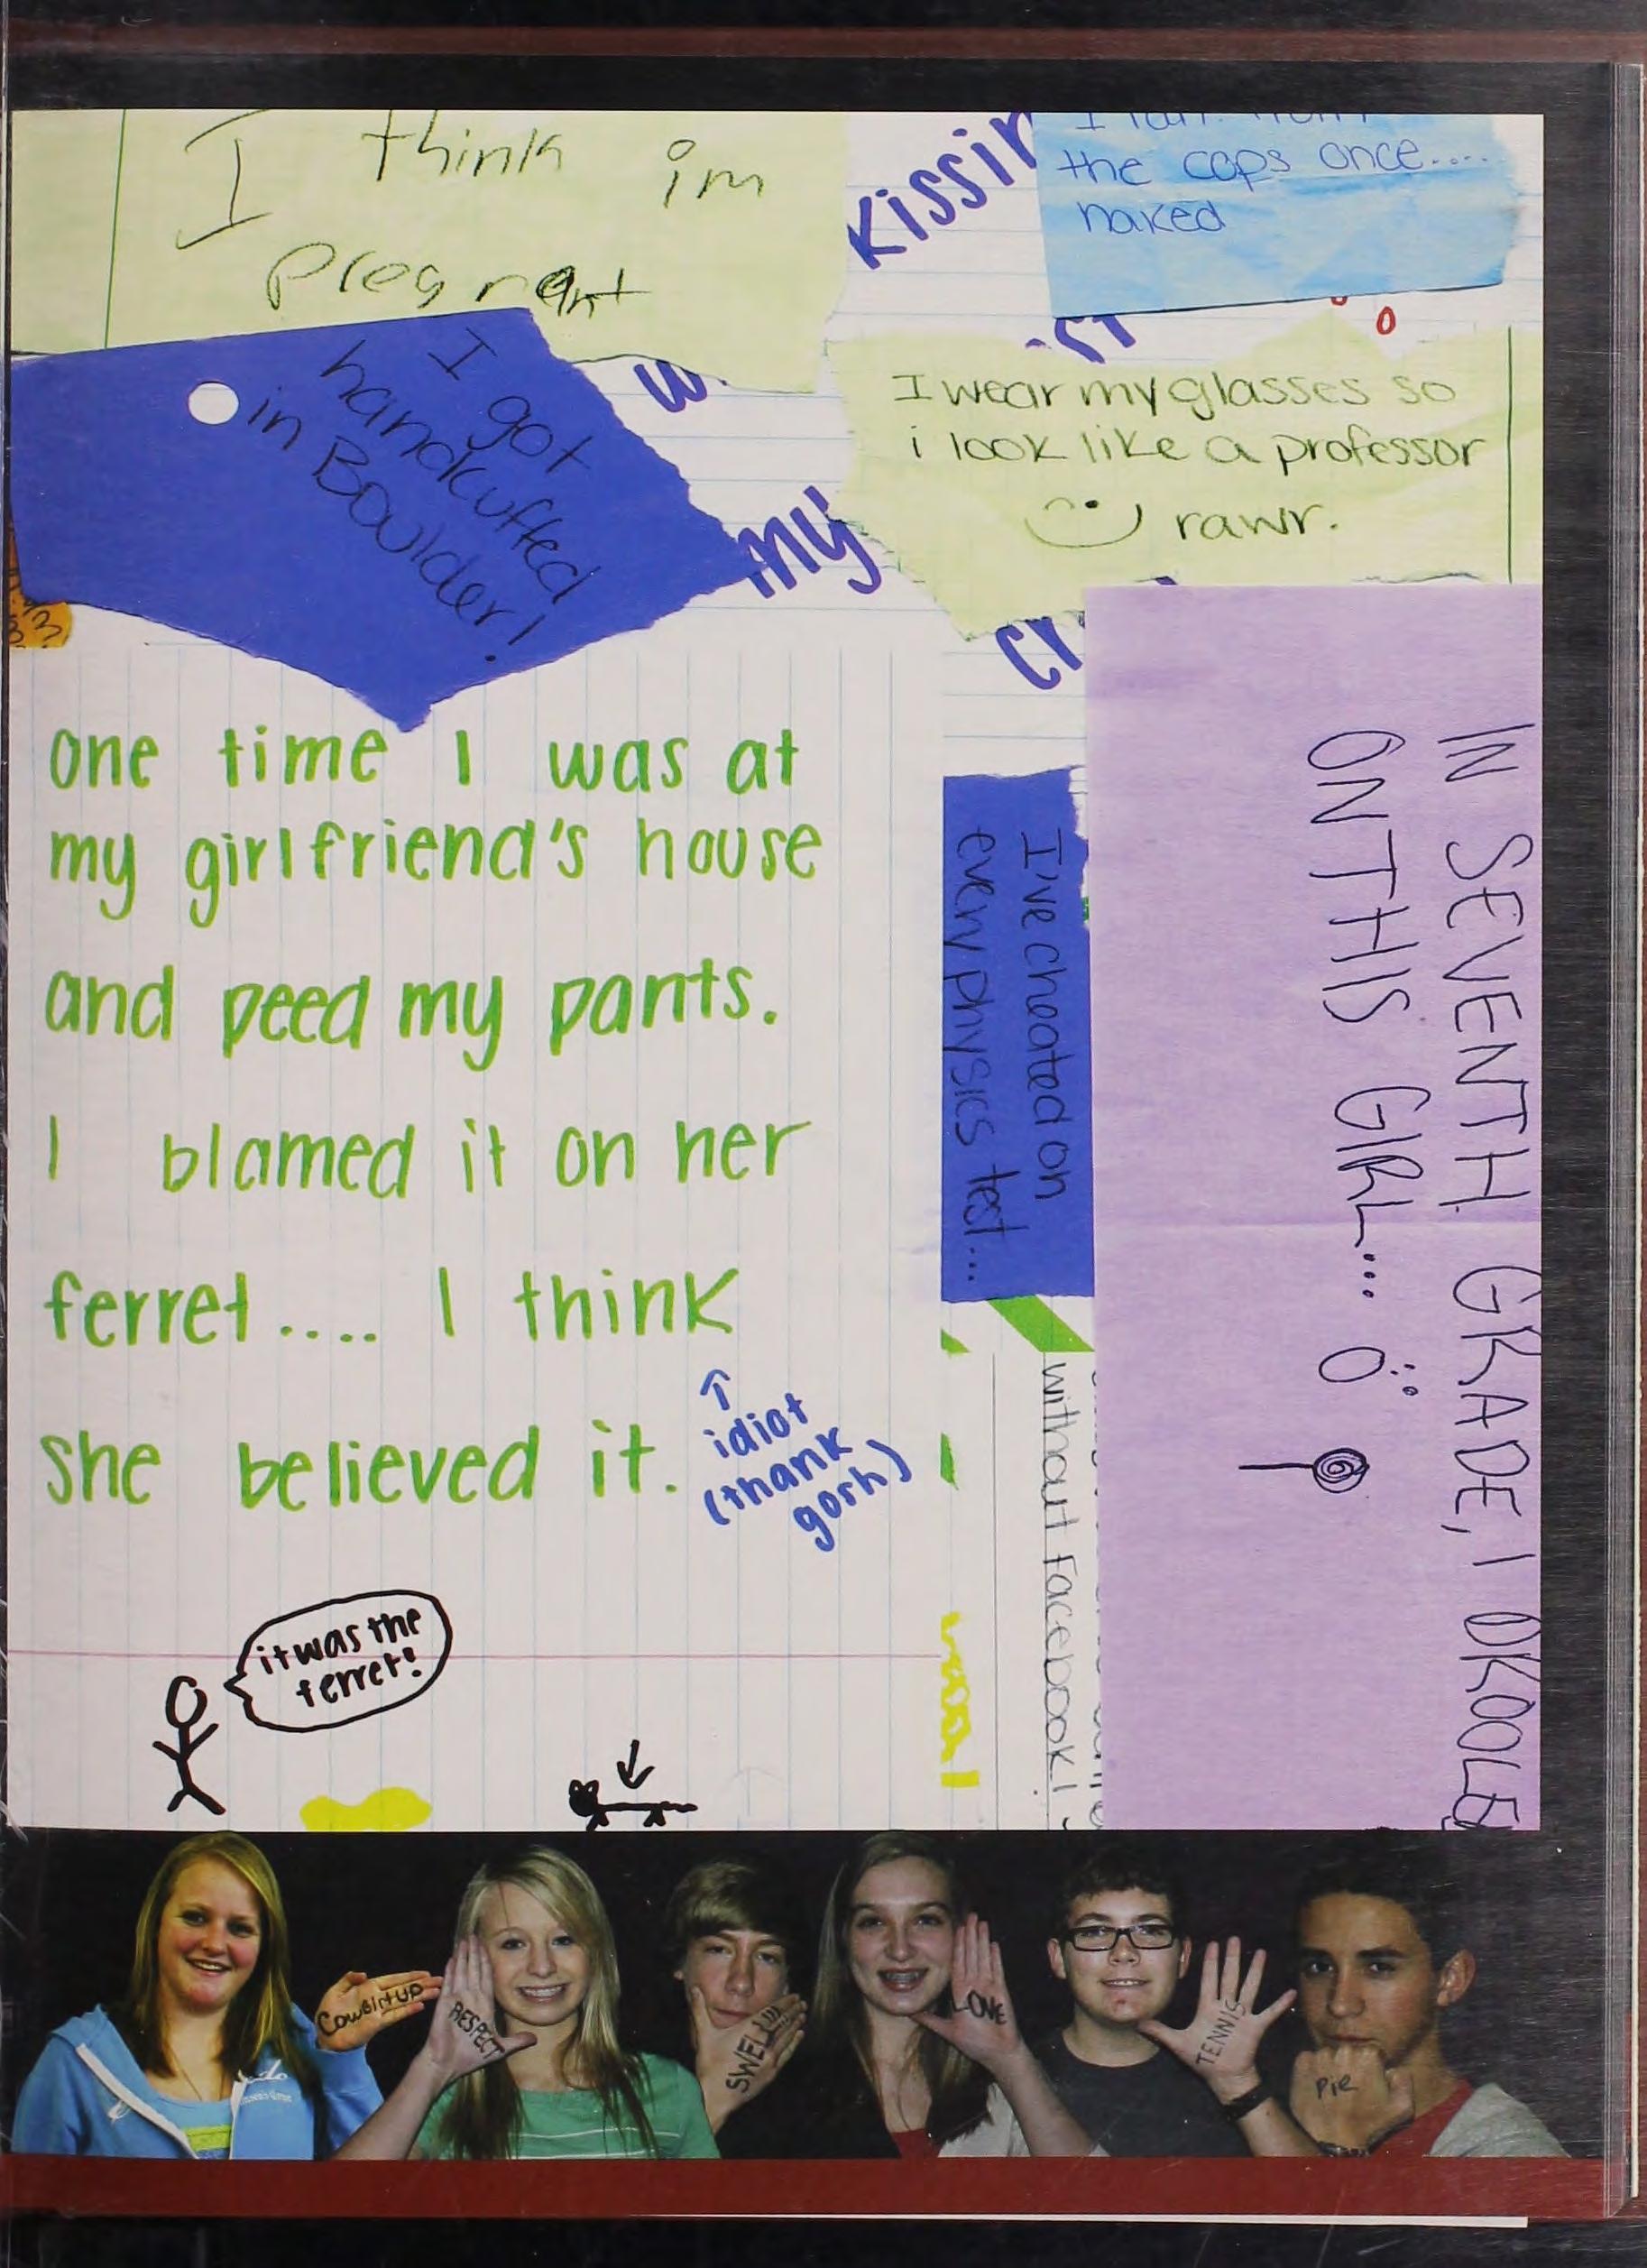 I think im
pregnant
Kissin
the cops once....
naked
I got
handcuffed
in Boulder!
my
I wear my glasses so
i look like a professor
rawr.
one time I was at
my girlfriend's house
and peed my pants.
I blamed it on her
ferret.... I think
she believed it.
idiot
(thank
gosh)
it was the
ferret!
I've cheated on
every physics test...
without facebook!
IN SEVENTH GRADE, I DROOLED
ON THIS GIRL...
CowGirl up
RESPECT
SWELL!!!
LOVE
TENNIS
Pie